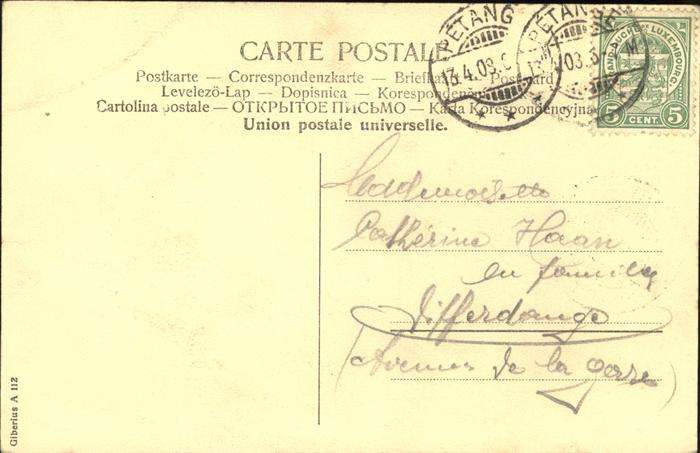 CARTE POSTALE
Postkarte — Correspondenzkarte — Briefkaart — Postcard
Levelező-Lap — Dopisnica — Korespondenční
Cartolina postale — ОТКРЫТОЕ ПИСЬМО — Karta Korespondencyjna
Union postale universelle.
PÉTANG
13.4.03
PÉTAN
03
GRAND-DUCHÉ DE LUXEMBOURG
5 CENT. 5
Mademoiselle
Cathérine Haan
en famille
Differdange
(Avenue de la gare)
Giberius A 112